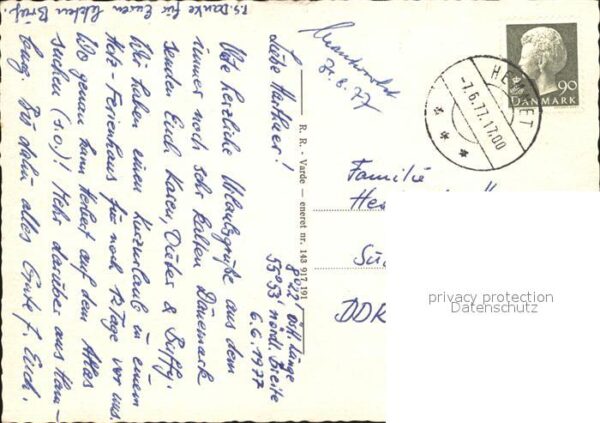 P.S. Danke für Euren lieben Brief.
8°22' östl. Länge
55°53' nördl. Breite
6.6.1977
Liebe
Viele herzliche Urlaubsgrüße aus dem
immer noch sehr kalten Dänemark
senden Euch Karen, Dieter & Buffy.
Wir haben einen Kurzurlaub in einem
Holz-Ferienhaus für noch 12 Tage vor uns.
Wo genau kann Herbert auf dem Atlas
suchen (s.o.)! Mehr darüber aus Ham-
burg. Bis dahin alles Gute f. Euch.
7.6.77
R. R. - Varde - eneret nr. 143 912 191
HENNET
-7.6.77.17.00
90
DANMARK
Familie
He
Sü
DDR
privacy protection
Datenschutz